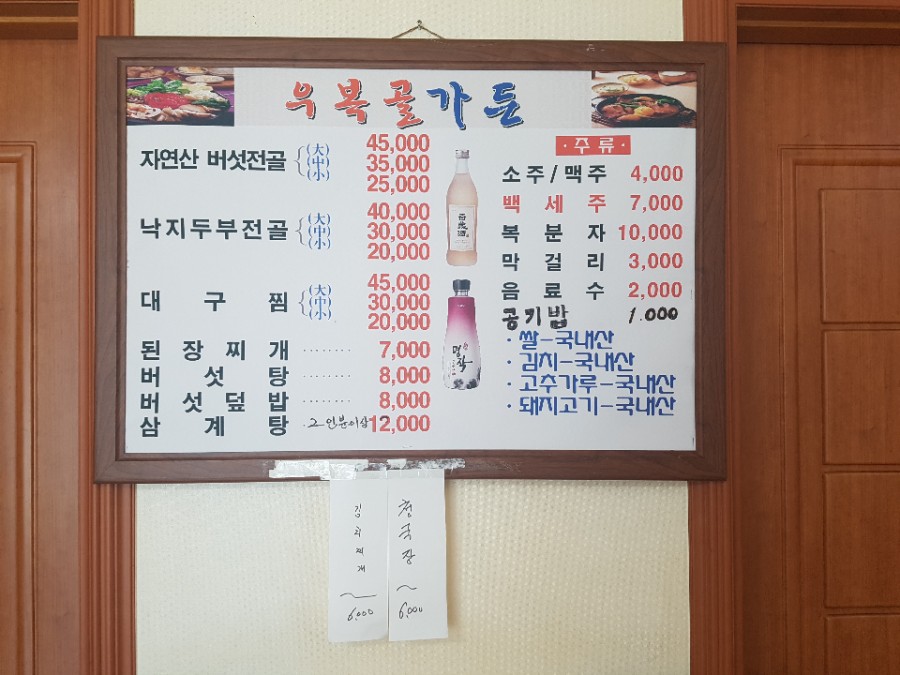 우복골가든
자연산 버섯전골 (大) 45,000
(中) 35,000
(小) 25,000
낙지두부전골 (大) 40,000
(中) 30,000
(小) 20,000
대구찜 (大) 45,000
(中) 30,000
(小) 20,000
된장찌개 ········ 7,000
버섯탕 ········ 8,000
버섯덮밥 8,000
삼계탕 ·2인분이상 12,000
·주류·
소주/맥주 4,000
백세주 7,000
복분자 10,000
막걸리 3,000
음료수 2,000
공기밥 1.000
·쌀-국내산
·김치-국내산
·고추가루-국내산
·돼지고기-국내산
김치찌개 ~ 6,000
청국장 ~ 6,000